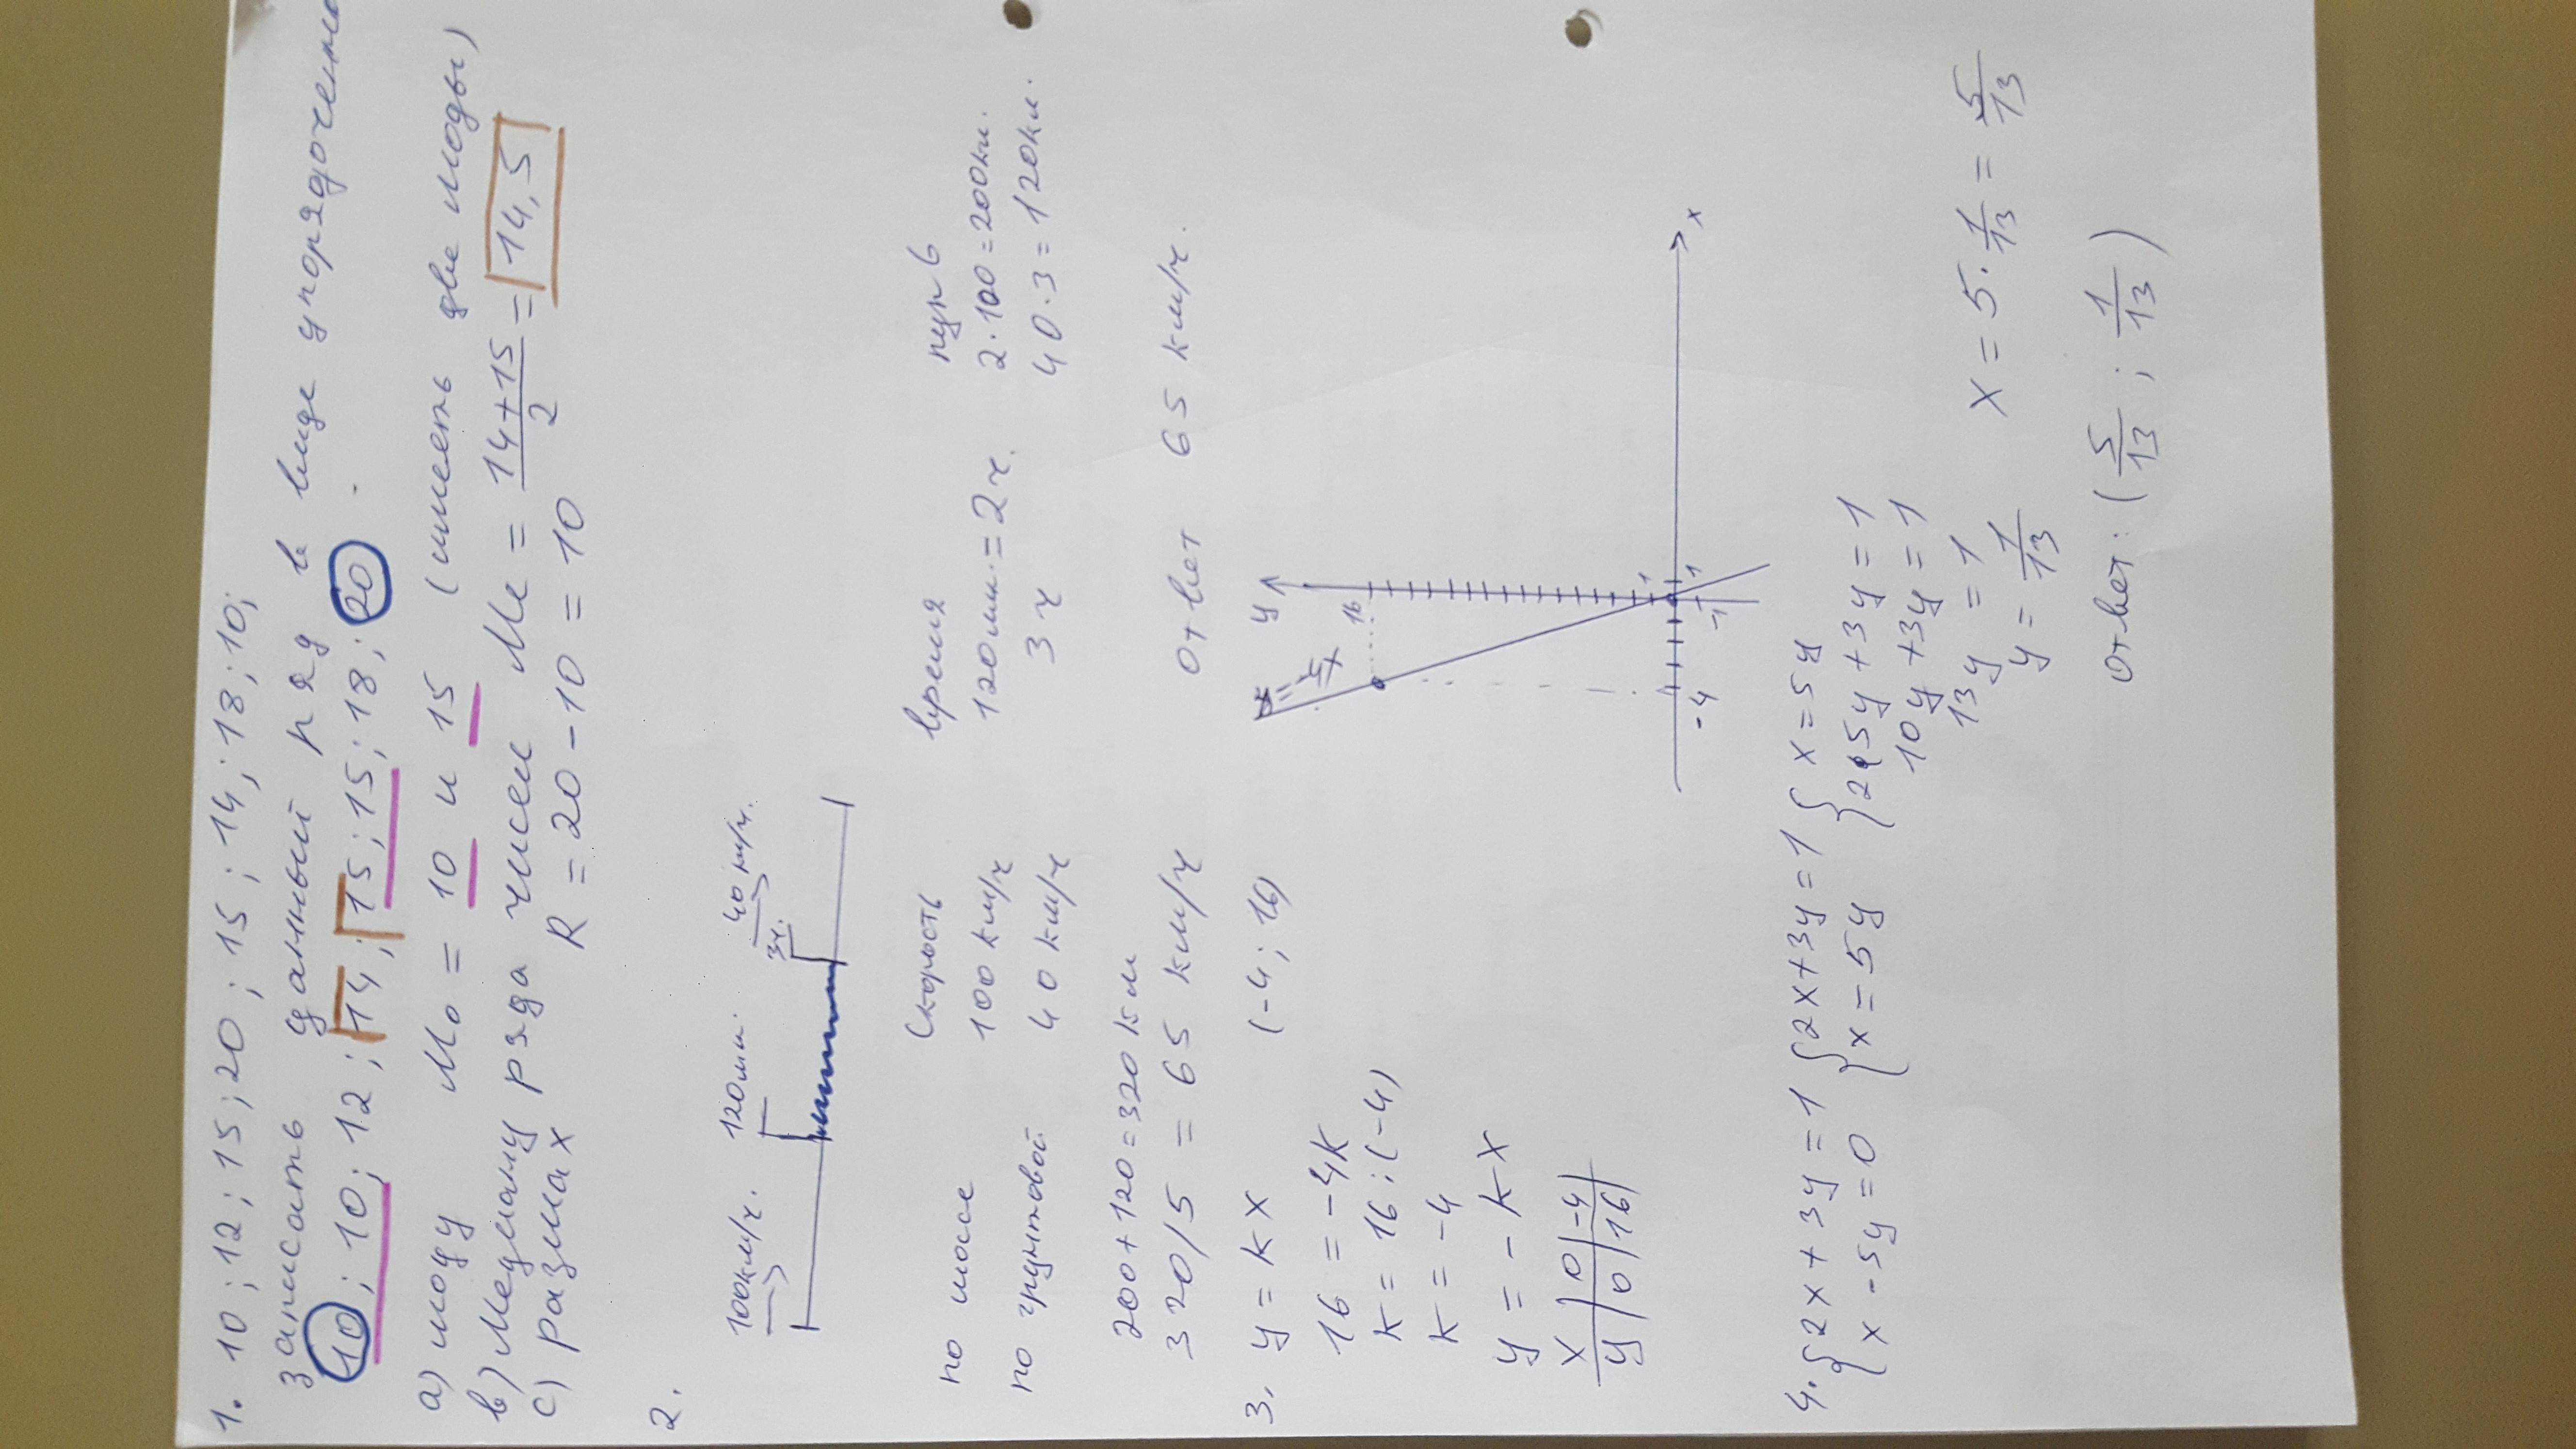 1. 10; 12; 15; 20; 15; 14; 18; 10;
записать данный ряд в виде
10; 10; 12; 14; 15; 15; 18; 20.
а) моду Mo = 10 и 15 (имеет две моды)
в) Медиану ряда чисел Me = 14+15/2 = 14,5
с) размах R = 20 - 10 = 10
2.
100км/ч. 120мин. 3ч. 40 км/ч.
Скорость время путь
по шоссе 100 км/ч 120мин. = 2ч. 2·100 = 200км.
по грунтовой 40 км/ч 3 ч 40·3 = 120км.
200 + 120 = 320 км
320/5 = 65 км/ч Ответ 65 км/ч.
3. y = kx (-4; 16)
16 = -4k
k = 16 : (-4)
k = -4
y = - kx
x 0 -4
y 0 16
y
y = -4x
16
1
-4
1
-1
x
4. {2x + 3y = 1 {2x + 3y = 1 {x = 5y
{x - 5y = 0 {x = 5y {2·5y + 3y = 1
10y + 3y = 1
13y = 1
y = 1/13
x = 5 · 1/13 = 5/13
Ответ: (5/13 ; 1/13)